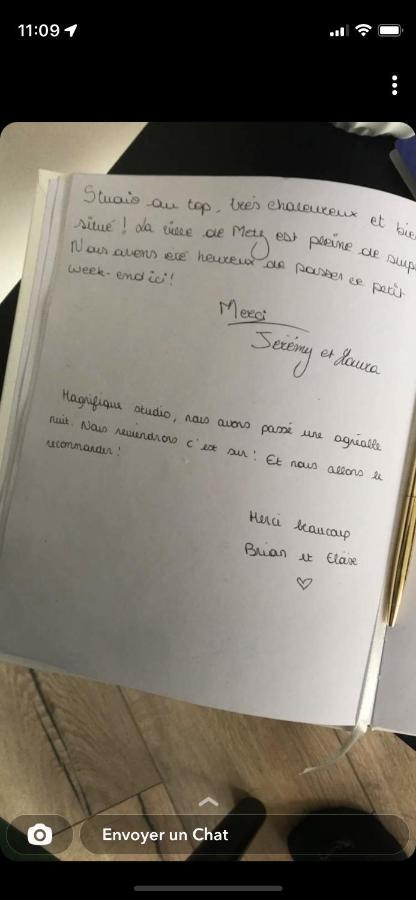 11:09
Studio au top, très chaleureux et bien
situé ! La ville de Metz est pleine de surp
Nous avons été heureux de passer ce petit
week-end ici !
Merci
Jérémy et Laura
Magnifique studio, nous avons passé une agréable
nuit. Nous reviendrons c'est sur ! Et nous allons le
recommander !
Merci beaucoup
Brian et Eloïse
Envoyer un Chat